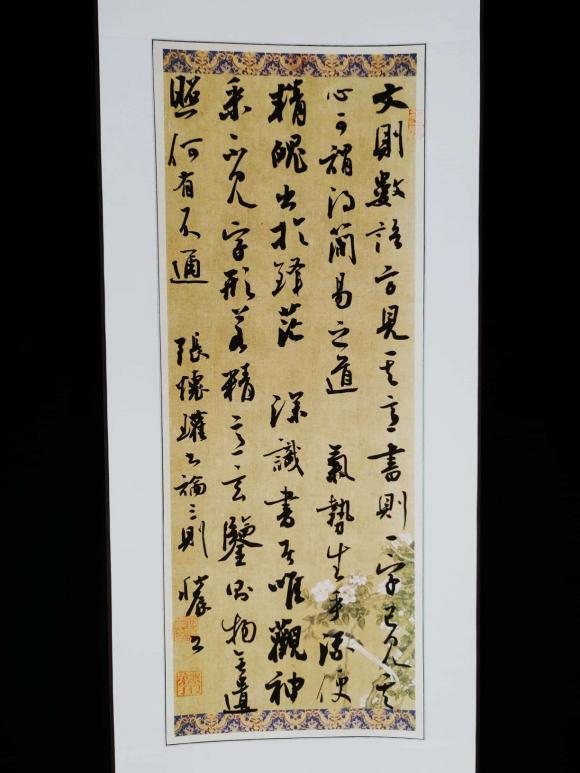 文則數語方見其意書則一字已見其
心可謂得簡易之道 氣勢生乎流便
精魄出於鋒芒 深識書者唯觀神
采不見字形若精意玄鑒則物無遺
照何有不通 張懷瓘书論三則